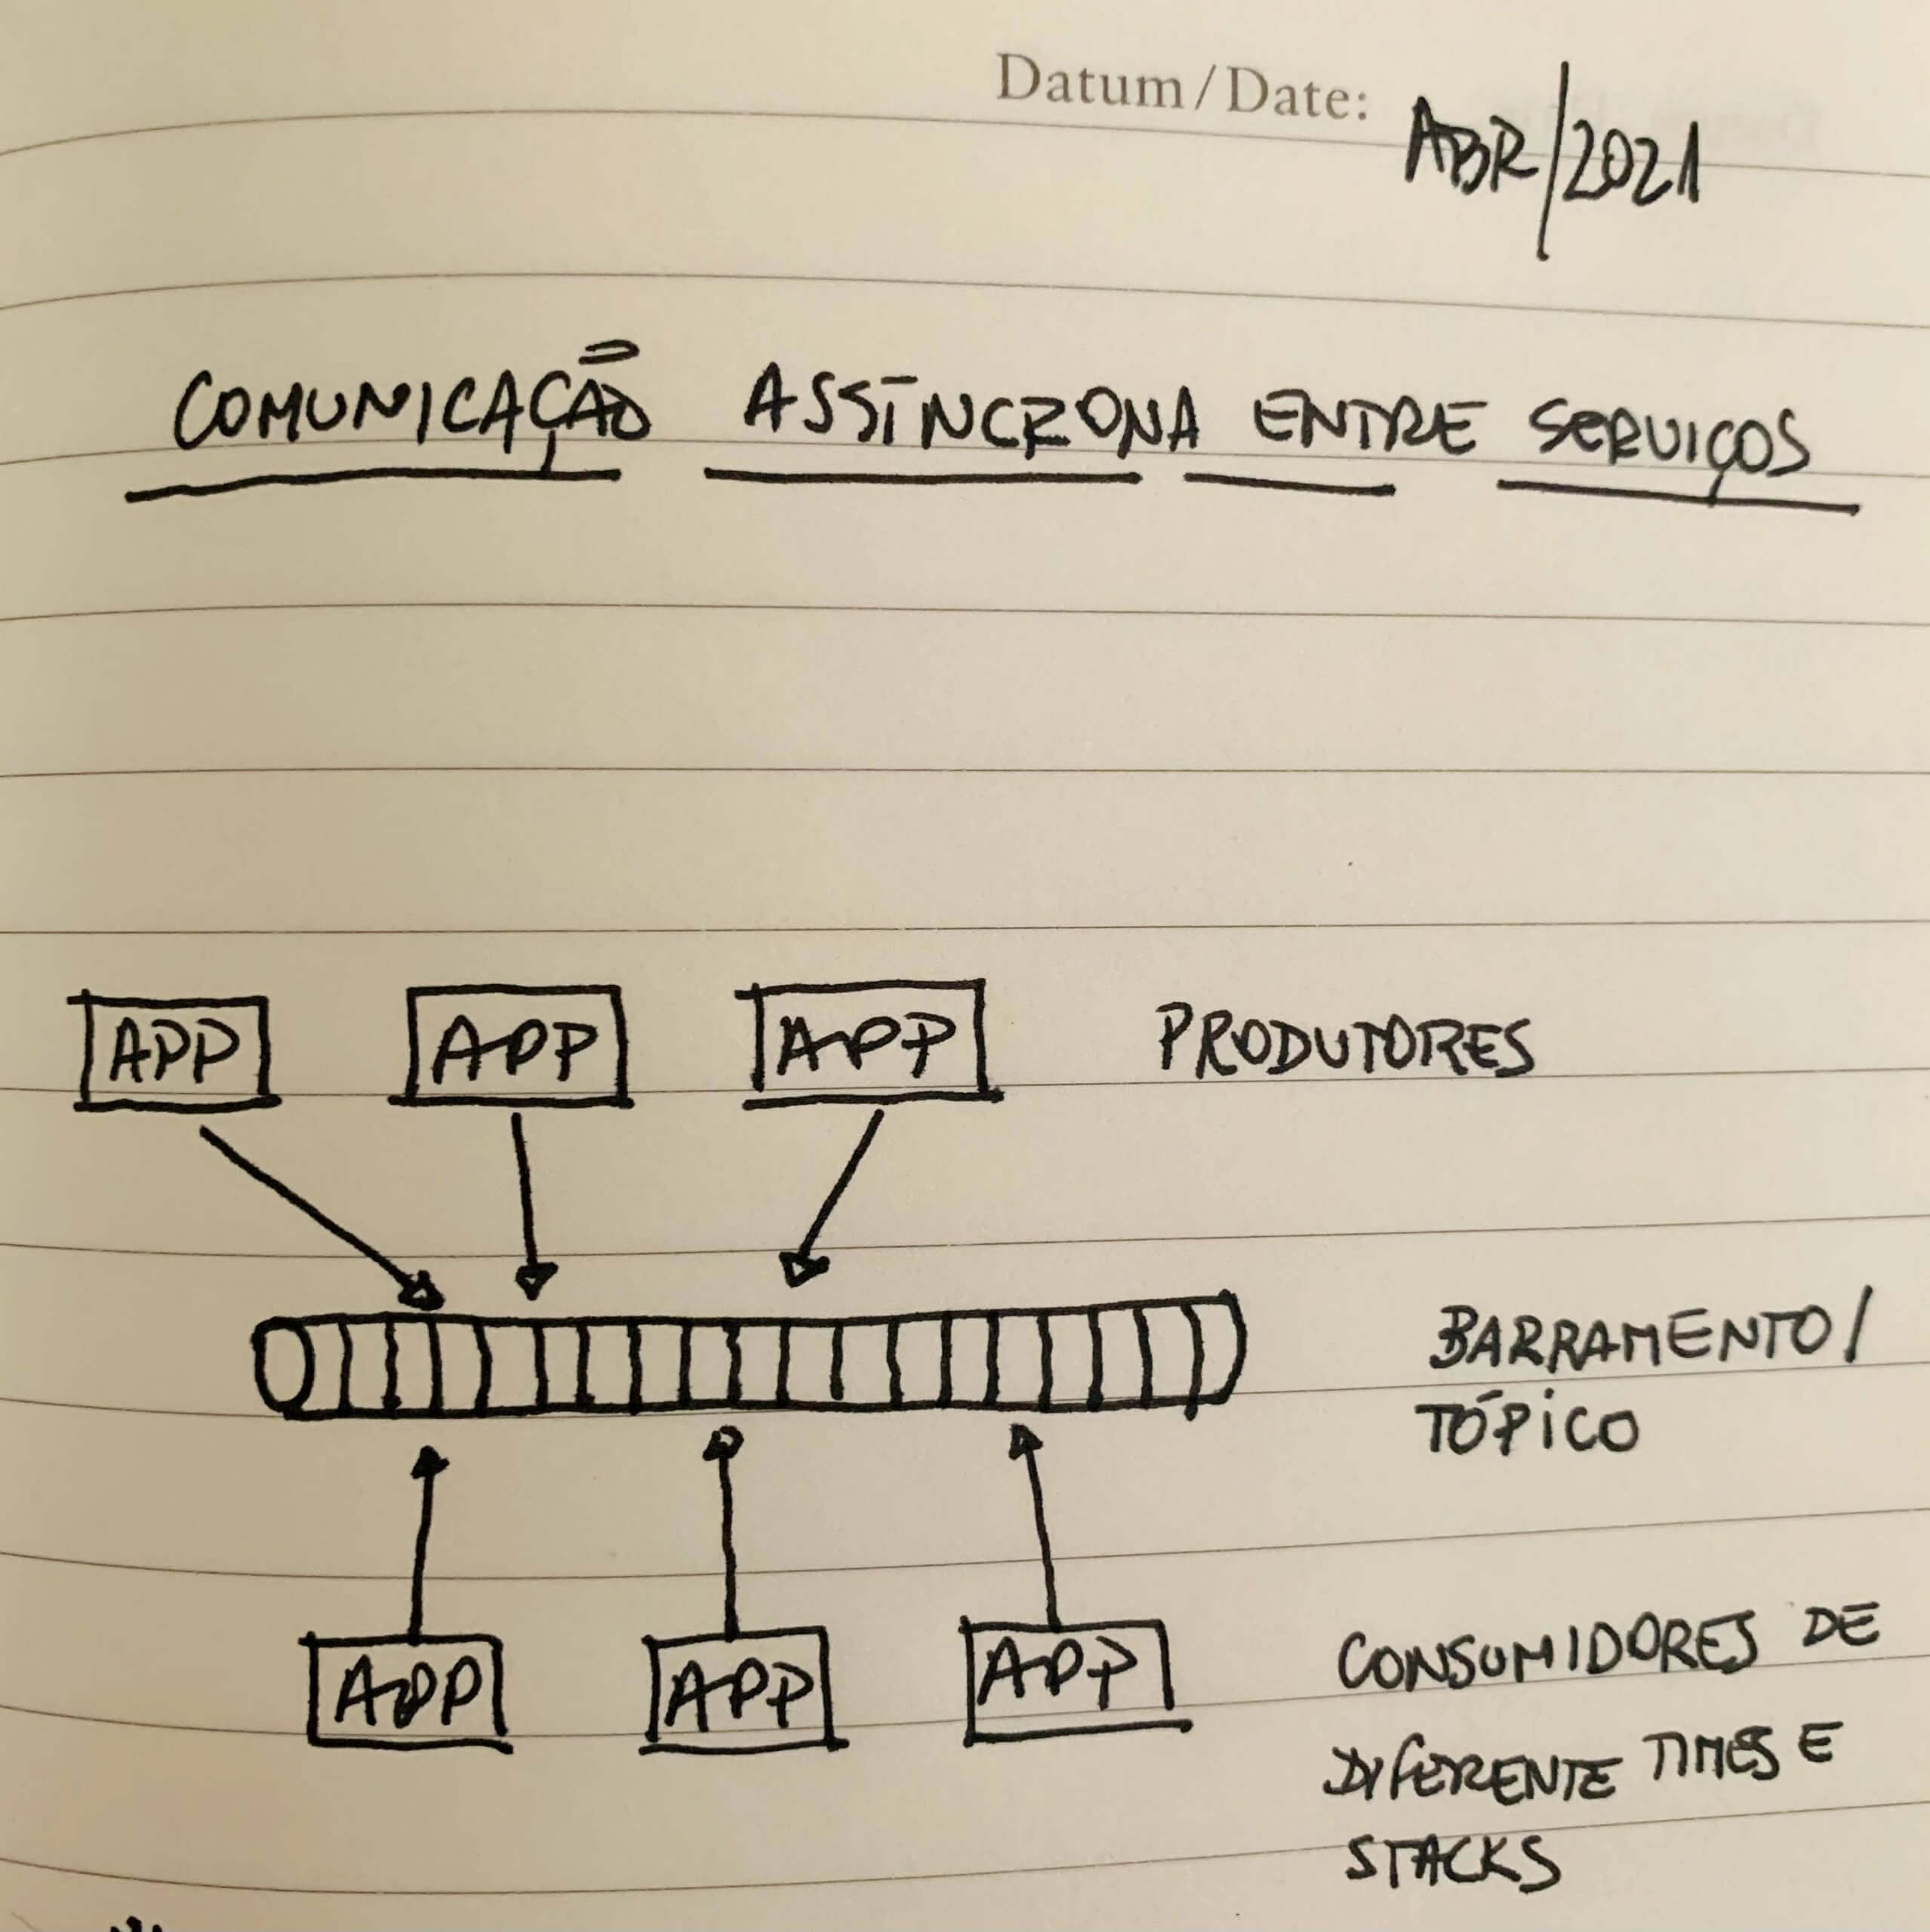 Datum/Date: ABR/2021
COMUNICAÇÃO ASSÍNCRONA ENTRE SERVIÇOS
APP APP APP PRODUTORES
BARRAMENTO/
TÓPICO
APP APP APP CONSUMIDORES DE
DIFERENTE TIMES E
STACKS